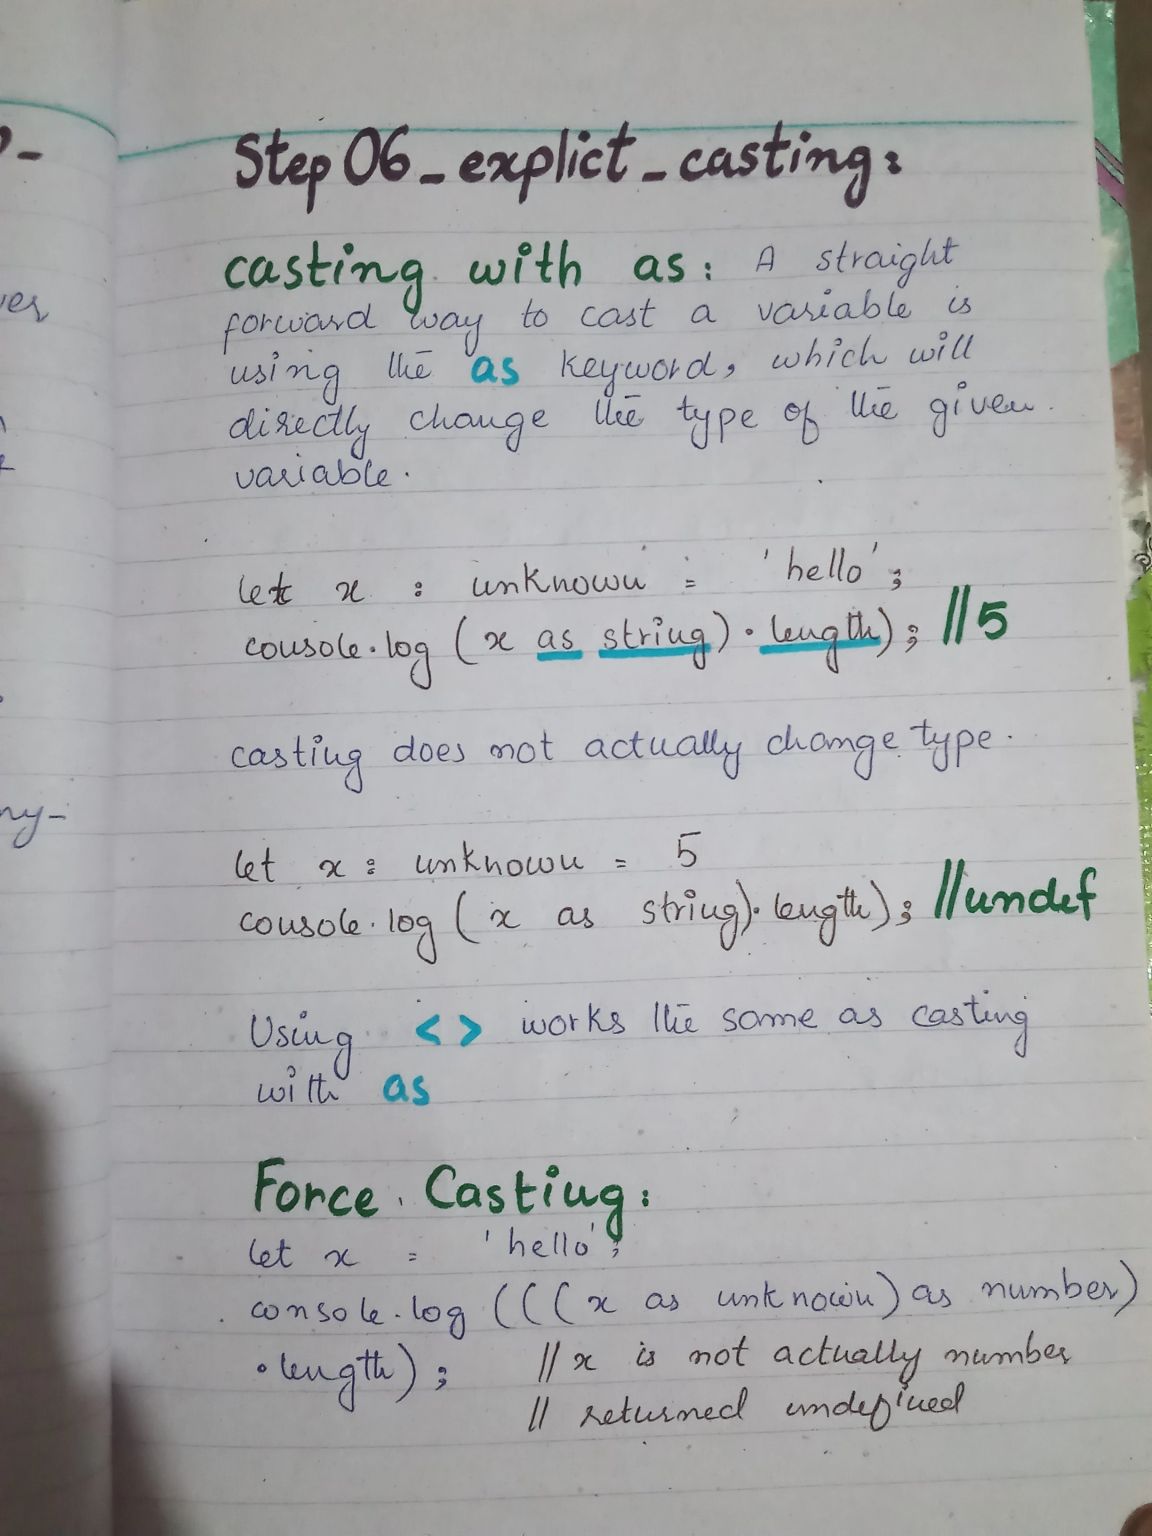 Step 06_explict_casting:
casting with as: A straight
forward way to cast a variable is
using the as keyword, which will
directly change the type of the given
variable.
let x : unknown = 'hello';
console.log (x as string).length); //5
casting does not actually change type.
let x : unknown = 5
console.log (x as string).length); //undef
Using <> works the same as casting
with as
Force Casting:
let x = 'hello';
console.log (((x as unknown) as number)
.length); // x is not actually number
// returned undefined